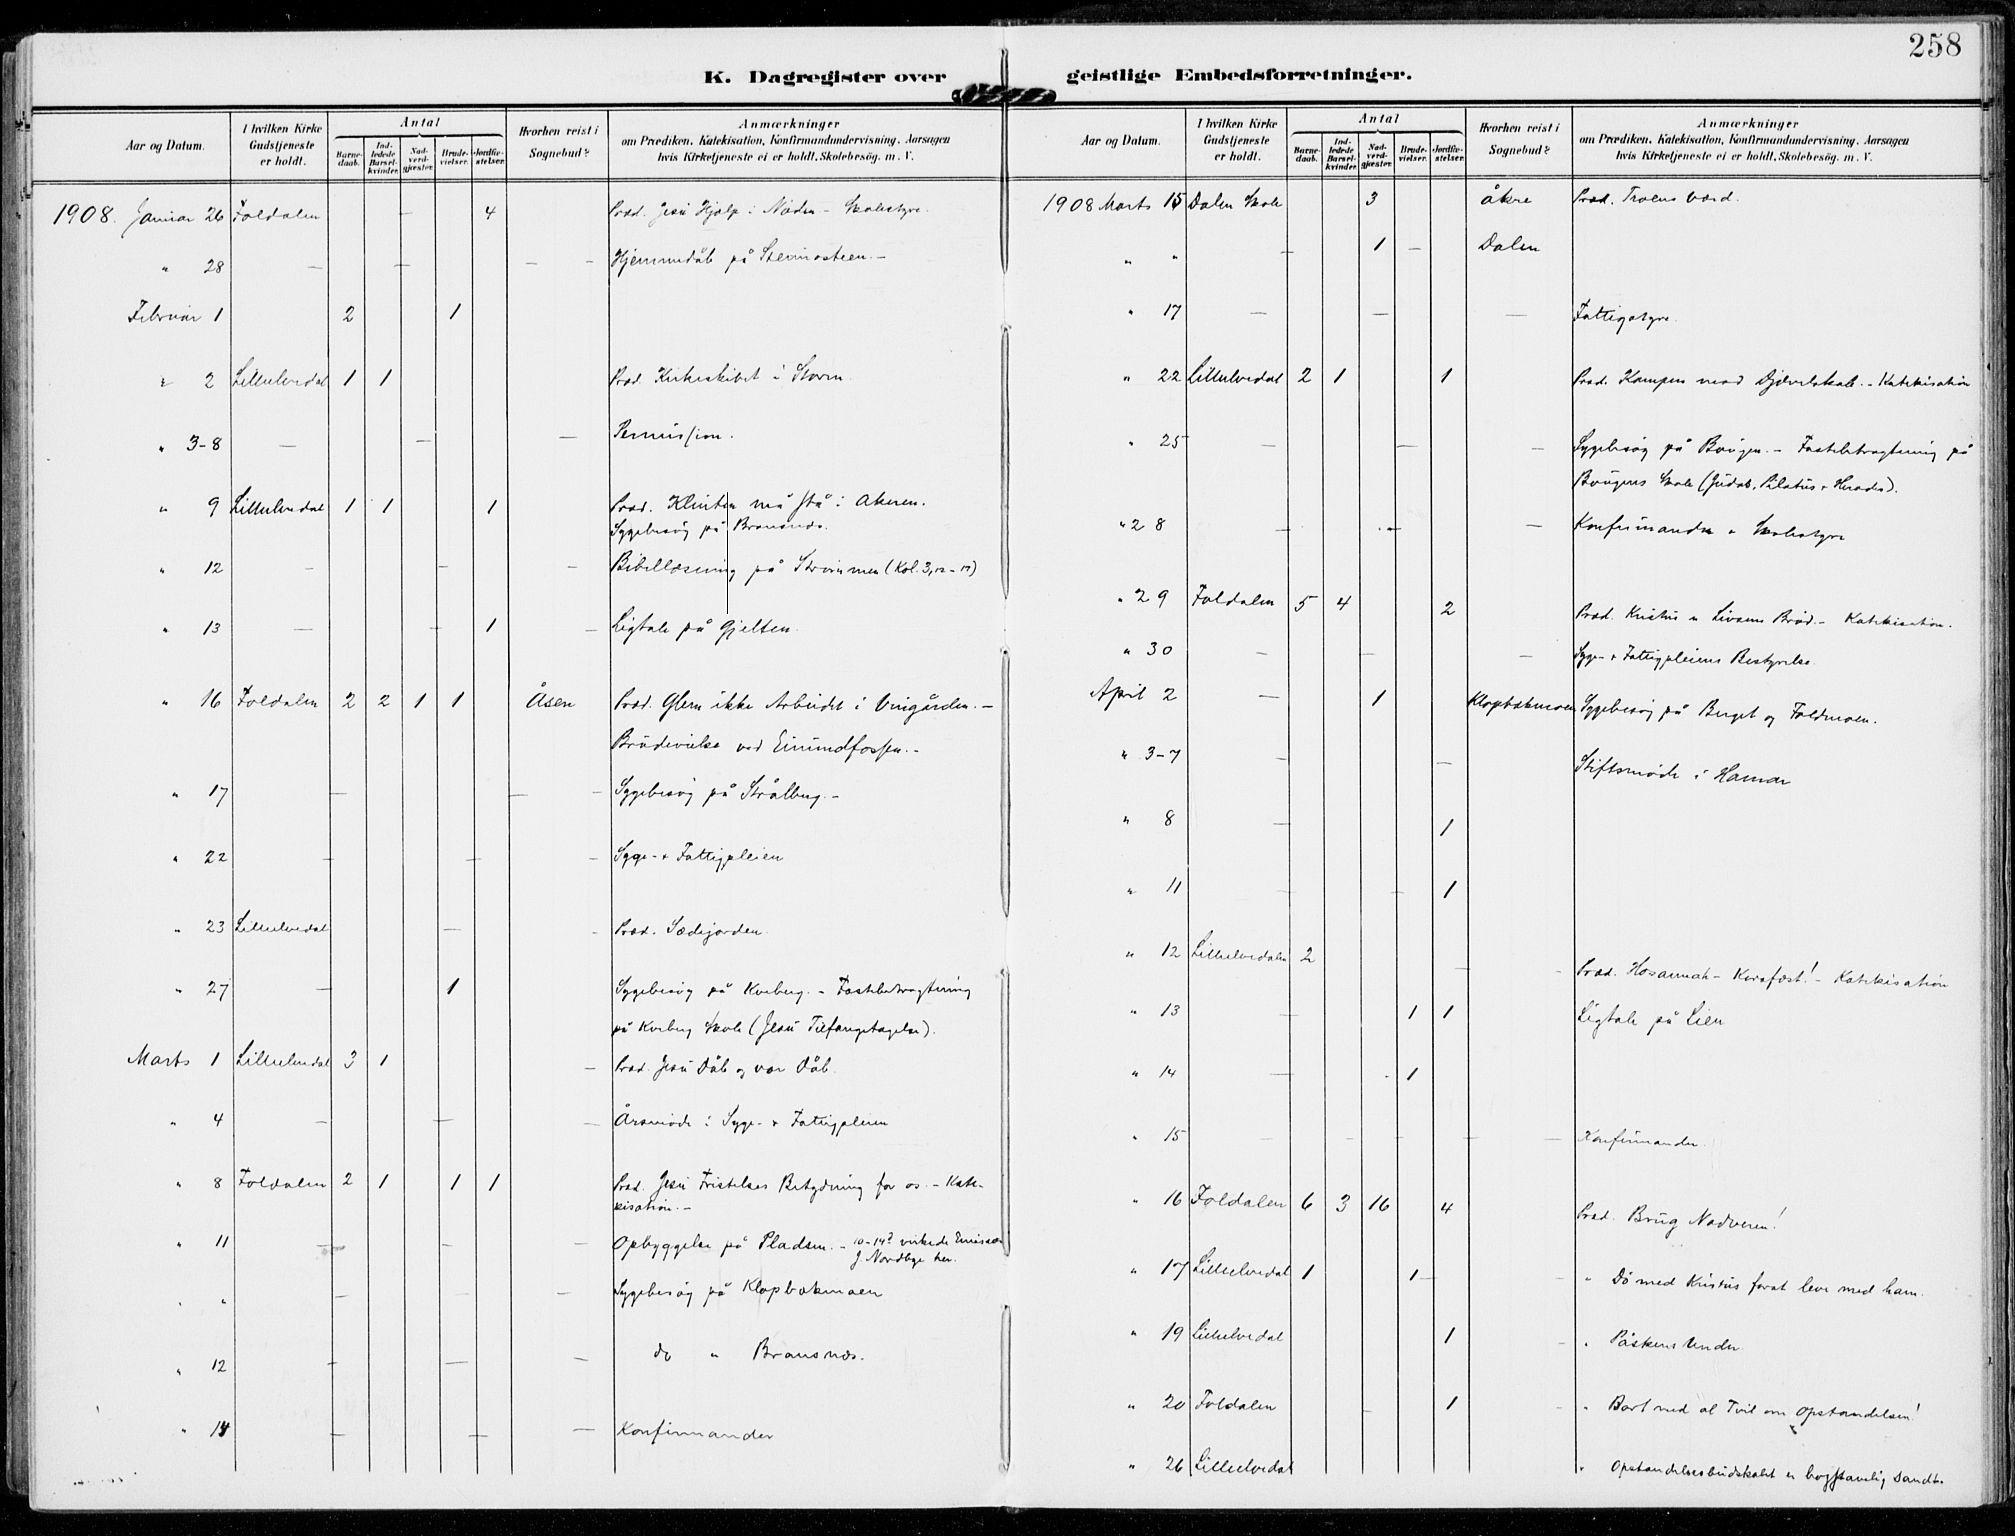 258
K. Dagregister over geistlige Embedsforretninger.
Aar og Datum.
I hvilken Kirke Gudstjeneste er holdt.
Antal
Barne-daab.
Ind-ledede Barsel-kvinder.
Nad-verd-gjæster.
Brude-vielser.
Jordfæ-stelser.
Hvorhen reist i Sognebud?
Anmærkninger
om Prædiken, Katekisation, Konfirmandundervisning, Aarsagen
hvis Kirketjeneste ei er holdt, Skolebesög. m. V.
1908. Januar 26 Foldalen — 4 Præd. Jesu Hjælp i Nöden - Skolestyre.
" 28 — — — — Hjemmedåb på Steimosteen. -
Februar 1 2 1
" 2 Lilleelvedal 1 1 Præd. Kirkeskibet i Storm.
" 3-8 — — — Permission.
" 9 Lilleelvedal 1 1 1 Præd. Klinten må stå i Akeren.
Sygebesög på Bransnæs.
" 12 — — — Bibellæsning på Streimmen (Kol. 3, 12-17)
" 13 — — 1 — Ligtale på Gjelten.
" 16 Foldalen 2 2 1 1 Åsen Præd. Glem ikke Arbeidet i Vingården. -
Brudevielse ved Einundfossen. -
" 17 — — — Sygebesög på Strålberg. -
" 22 — — — Syge- & Fattigpleien
" 23 Lilleelvedal — - Præd. Sædejorden.
" 27 — 1 Sygebesög på Kveberg. - Fastebetragtning
på Kveberg Skole (Jesu Tilfangetagelse).
Marts 1 Lilleelvedal 3 1 — Præd. Jesu Dåb og vor Dåb.
" 4 — — — Årsmöde i Syge- & Fattigpleien
" 8 Foldalen 2 1 1 1 Præd. Jesu Fristelses Betydning for os. - Kate-
kisation. -
" 11 — — — Opbyggelse på Pladsen. - 10-14? virkede Emissær
J. Nordbye her.
" " — — — Sygebesög på Klopbakmoen
" 12 — — — do " Bransnæs.
" 14 — — — Konfirmander
Aar og Datum.
I hvilken Kirke Gudstjeneste er holdt.
Antal
Barne-daab.
Ind-ledede Barsel-kvinder.
Nad-verd-gjæster.
Brude-vielser.
Jordfæ-stelser.
Hvorhen reist i Sognebud?
Anmærkninger
om Prædiken, Katekisation, Konfirmandundervisning, Aarsagen
hvis Kirketjeneste ei er holdt. Skolebesög. m. V.
1908 Marts 15 Dalen Skole 3 Åkre Præd. Troens Værd.
" " — 1 — Dalen
" 17 — — — Fattigstyre.
" 22 Lilleelvedal 2 1 1 Præd. Kampen mod Djævelskab. - Katekisation
" 25 — — — Sygebesög på Baugen. - Fastebetragtning på
Baugens Skole (Judas, Pilatus & Herodes).
" 28 — — — Konfirmander & Skolestyre
" 29 Foldalen 5 4 2 Præd. Kristus er Livsens Bröd. - Katekisation.
" 30 — — — Syge- & Fattigpleiens Bestyrelse
April 2 — 1 Klopbakmoen Sygebesög på Berget og Foldmoen.
" 3-7 — — Stiftsmöde i Hamar
" 8 — 1
" 11 — — 1
" 12 Lilleelvedalen 2 — - Præd. Hosannah - Korsfæst! - Katekisation
" 13 — 1 1 Ligtale på Lien
" 14 — - 1
" 15 — — — — — Konfirmander.
" 16 Foldalen 6 3 16 4 Præd. Brug Nadveren!
" 17 Lilleelvedal 1 1 - " Dö med Kristus forat leve med ham.
" 19 Lilleelvedal 1 - " Påskens Under.
" 20 Foldalen - 1 - " Bort med al Tvil om Opstandelsen!
" 26 Lilleelvedal " Opstandelsesbudskabet er bogstavelig Sandt.